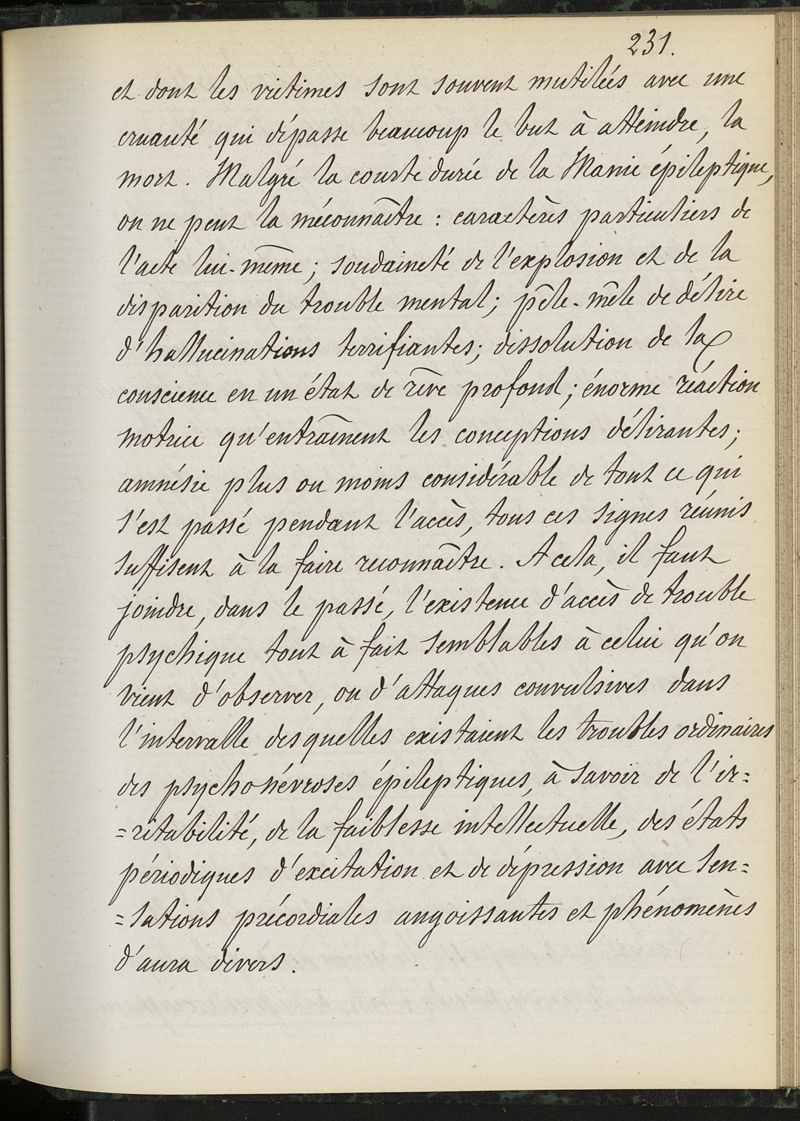 231.
et dont les victimes sont souvent mutilées avec une
cruauté qui dépasse beaucoup le but à atteindre, la
mort. Malgré la courte durée de la Manie épileptique,
on ne peut la méconnaître : caractères particuliers de
l'acte lui-même ; soudaineté de l'explosion et de la
disparition du trouble mental ; pêle-mêle de délire
d'hallucinations terrifiantes ; dissolution de la
conscience en un état de rêve profond ; énorme réaction
motrice qu'entraînent les conceptions délirantes ;
amnésie plus ou moins considérable de tout ce qui
s'est passé pendant l'accès, tous ces signes réunis
suffisent à la faire reconnaître. A cela, il faut
joindre, dans le passé, l'existence d'accès de trouble
psychique tout à fait semblables à celui qu'on
vient d'observer, ou d'attaques convulsives dans
l'intervalle desquelles existaient les troubles ordinaires
des psychonévroses épileptiques, à savoir de l'ir=
=ritabilité, de la faiblesse intellectuelle, des états
périodiques d'excitation et de dépression avec sen=
=sations précordiales angoissantes et phénomènes
d'aura divers.